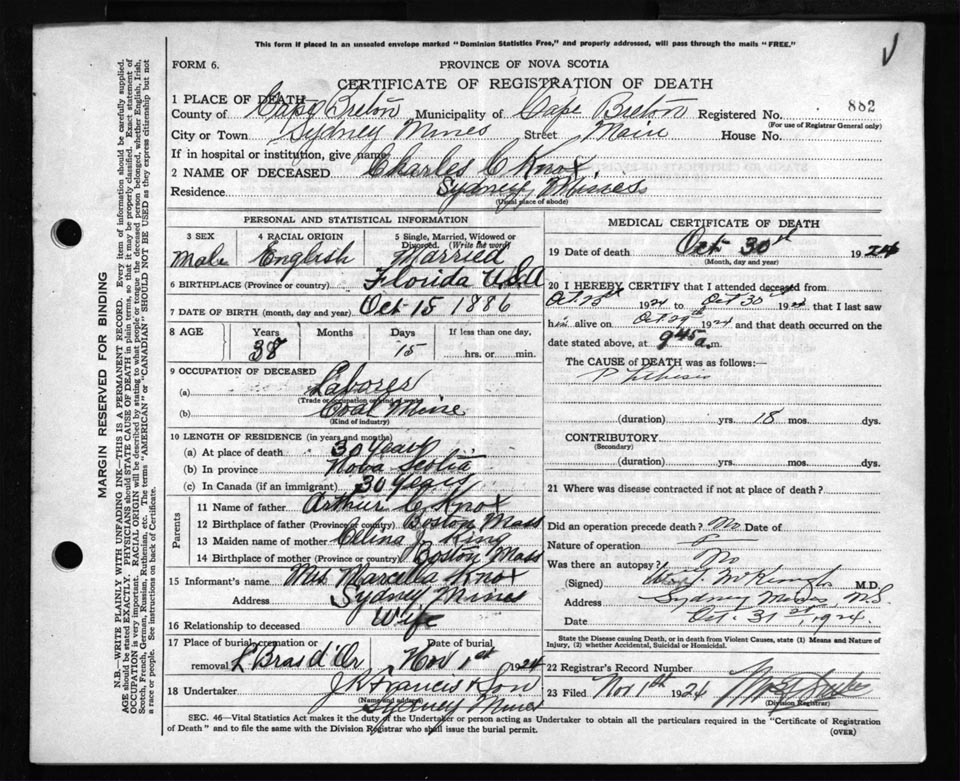 This form if placed in an unsealed envelope marked "Dominion Statistics Free," and properly addressed, will pass through the mails "FREE."
FORM 6.
PROVINCE OF NOVA SCOTIA
CERTIFICATE OF REGISTRATION OF DEATH
1 PLACE OF DEATH
County of Cape Breton Municipality of Cape Breton Registered No. 882
(For use of Registrar General only)
City or Town Sydney Mines Street Main House No.
If in hospital or institution, give name
2 NAME OF DECEASED Charles C Knox
Residence Sydney Mines
(Usual place of abode)
PERSONAL AND STATISTICAL INFORMATION
3 SEX Male
4 RACIAL ORIGIN English
5 Single, Married, Widowed or Divorced. (Write the word) Married
6 BIRTHPLACE (Province or country) Florida U.S.A
7 DATE OF BIRTH (month, day and year) Oct 15 1886
8 AGE Years 38 Months Days 15 If less than one day, hrs. or min.
9 OCCUPATION OF DECEASED
(a) Laborer
(Trade or occupation or kind of work)
(b) Coal Mine
(Kind of industry)
10 LENGTH OF RESIDENCE (in years and months)
(a) At place of death 30 Years
(b) In province Nova Scotia
(c) In Canada (if an immigrant) 30 Years
Parents
11 Name of father Arthur C Knox
12 Birthplace of father (Province or country) Boston Mass
13 Maiden name of mother Celina J King
14 Birthplace of mother (Province or country) Boston Mass
15 Informant's name Mrs Marcella Knox
Address Sydney Mines
16 Relationship to deceased Wife
17 Place of burial, cremation or removal L Bras d'Or Date of burial Nov 1st 1924
18 Undertaker J K Francis & Son
(Name and address)
Sydney Mines
MEDICAL CERTIFICATE OF DEATH
19 Date of death Oct 30th 1924
(Month, day and year)
20 I HEREBY CERTIFY that I attended deceased from
1924 to Oct 30th 1924 that I last saw
him alive on Oct 29th 1924 and that death occurred on
date stated above, at 9 45 a.m.
The CAUSE of DEATH was as follows:
Phthisis
(duration) yrs. 18 mos. dys.
CONTRIBUTORY
(Secondary)
(duration) yrs. mos. dys.
21 Where was disease contracted if not at place of death?
Did an operation precede death? No Date of
Nature of operation
Was there an autopsy? No
(Signed) M.D.
Address Sydney Mines, N.S.
Date Oct. 31st, 1924.
State the Disease causing Death, or in death from Violent Causes, state (1) Means and Nature of Injury, (2) whether Accidental, Suicidal or Homicidal.
22 Registrar's Record Number
23 Filed Nov 1th 1924
(Division Registrar)
SEC. 46—Vital Statistics Act makes it the duty of the Undertaker or person acting as Undertaker to obtain all the particulars required in the "Certificate of Registration
of Death" and to file the same with the Division Registrar who shall issue the burial permit.
(OVER)
MARGIN RESERVED FOR BINDING
N.B.—WRITE PLAINLY WITH UNFADING INK—THIS IS A PERMANENT RECORD. Every item of information should be carefully supplied.
AGE should be stated EXACTLY. PHYSICIANS should STATE CAUSE OF DEATH in plain terms, so that it may be properly classified. Exact statement of
OCCUPATION is very important. RACIAL ORIGIN will be described by stating to what people or tongue the deceased person belonged, whether English, Irish,
Scotch, French, German, Russian, Ruthenian, etc. The terms "AMERICAN" or "CANADIAN" SHOULD NOT BE USED as they express citizenship but not
a race or people. See instructions on back of Certificate.